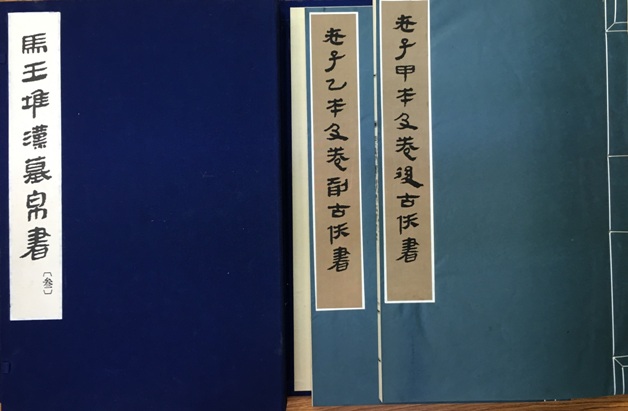 馬王堆漢墓帛書
〔叁〕
老子乙本及卷前古佚書
老子甲本及卷後古佚書